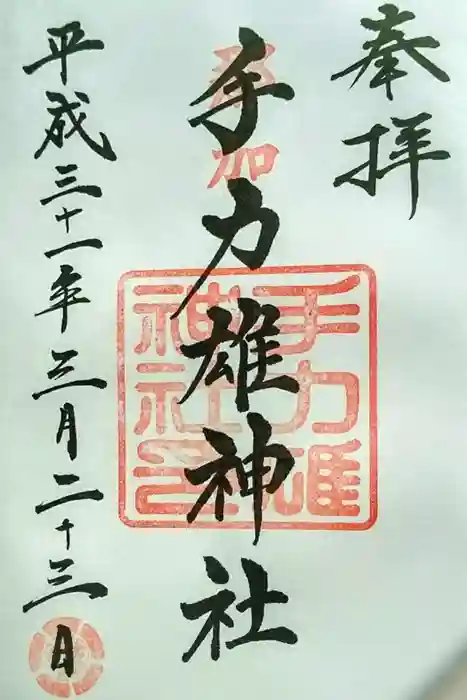 奉拝
手力雄神社
那加
手力雄
神社印
平成三十一年三月二十三日